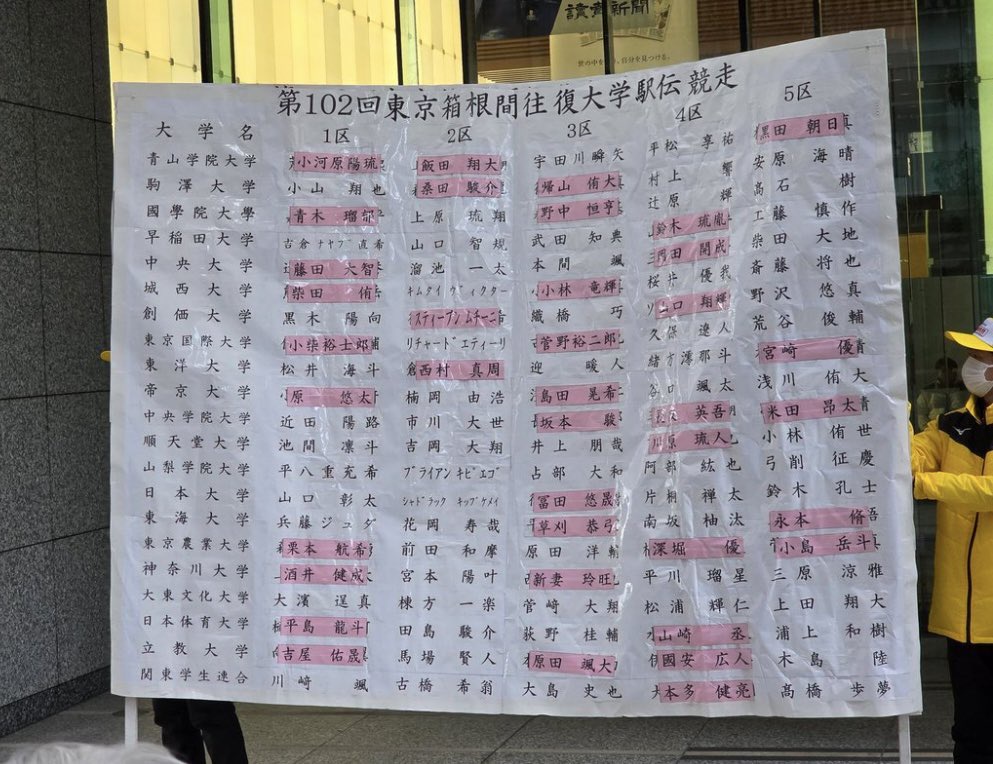 讀賣新聞
第102回東京箱根間往復大学駅伝競走
大学名 1区 2区 3区 4区 5区
青山学院大学 小河原陽琉 飯田 翔大 宇田川瞬矢 平松享祐 黒田 朝日
駒澤大学 小山翔也 桑田 駿介 帰山 侑大 村上響 安原海晴
國學院大學 青木 瑠郁 上原琉翔 野中 恒亨 辻原輝 高石樹
早稲田大学 吉倉ナヤブ直希 山口智規 武田知典 鈴木 琉胤 工藤慎作
中央大学 藤田 大智 溜池一太 本間颯 岡田 開成 柴田大地
城西大学 柴田 侑 キムタイ ヴィクター 小林 竜輝 桜井優我 斎藤将也
創価大学 黒木陽向 スティーブン ムチーニ 織橋巧 山口 翔輝 野沢悠真
東京国際大学 小柴裕士郎 リチャード エティーリ 菅野裕二郎 久保遼人 荒谷俊輔
東洋大学 松井海斗 西村 真周 迎暖人 緒方澪那斗 宮崎 優
帝京大学 原 悠太 楠岡由浩 島田 晃希 谷口颯太 浅川侑大
中央学院大学 近田陽路 市川大世 坂本 駿 英吾 米田 昂太
順天堂大学 池間凛斗 吉岡大翔 井上朋哉 川原 琉人 小林侑世
山梨学院大学 平八重充希 ブライアン キピエゴ 占部大和 阿部紘也 弓削征慶
日本大学 山口彰太 シャドラック キップケメイ 冨田 悠晟 片桐禅太 鈴木孔士
東海大学 兵藤ジュダ 花岡寿哉 草刈 恭弓 南坂柚汰 永本 脩
東京農業大学 栗本 航希 前田和摩 原田洋輔 深堀 優 小島 岳斗
神奈川大学 酒井 健成 宮本陽叶 新妻 玲旺 平川瑠星 三原涼雅
大東文化大学 大濱逞真 棟方一楽 菅崎大翔 松浦輝仁 上田翔大
日本体育大学 平島 龍斗 田島駿介 荻野桂輔 山崎 丞 浦上和樹
立教大学 吉屋 佑晟 馬場賢人 原田 颯大 國安 広人 木島陸
関東学生連合 川﨑颯 古橋希翁 大島史也 本多 健亮 髙橋歩夢